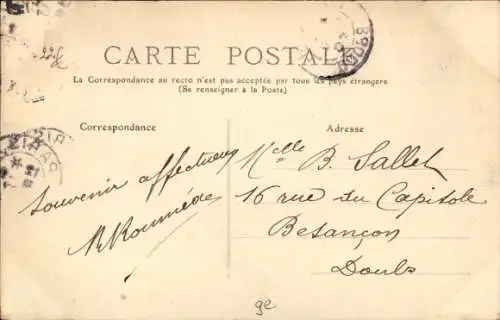 CARTE POSTALE
La Correspondance au recto n'est pas acceptée par tous les pays étrangers
(Se renseigner à la Poste)
Correspondance
Adresse
Souvenir affectueux
Melle B. Sallet
16 rue du Capitole
Besançon
Doubs
DOUBS